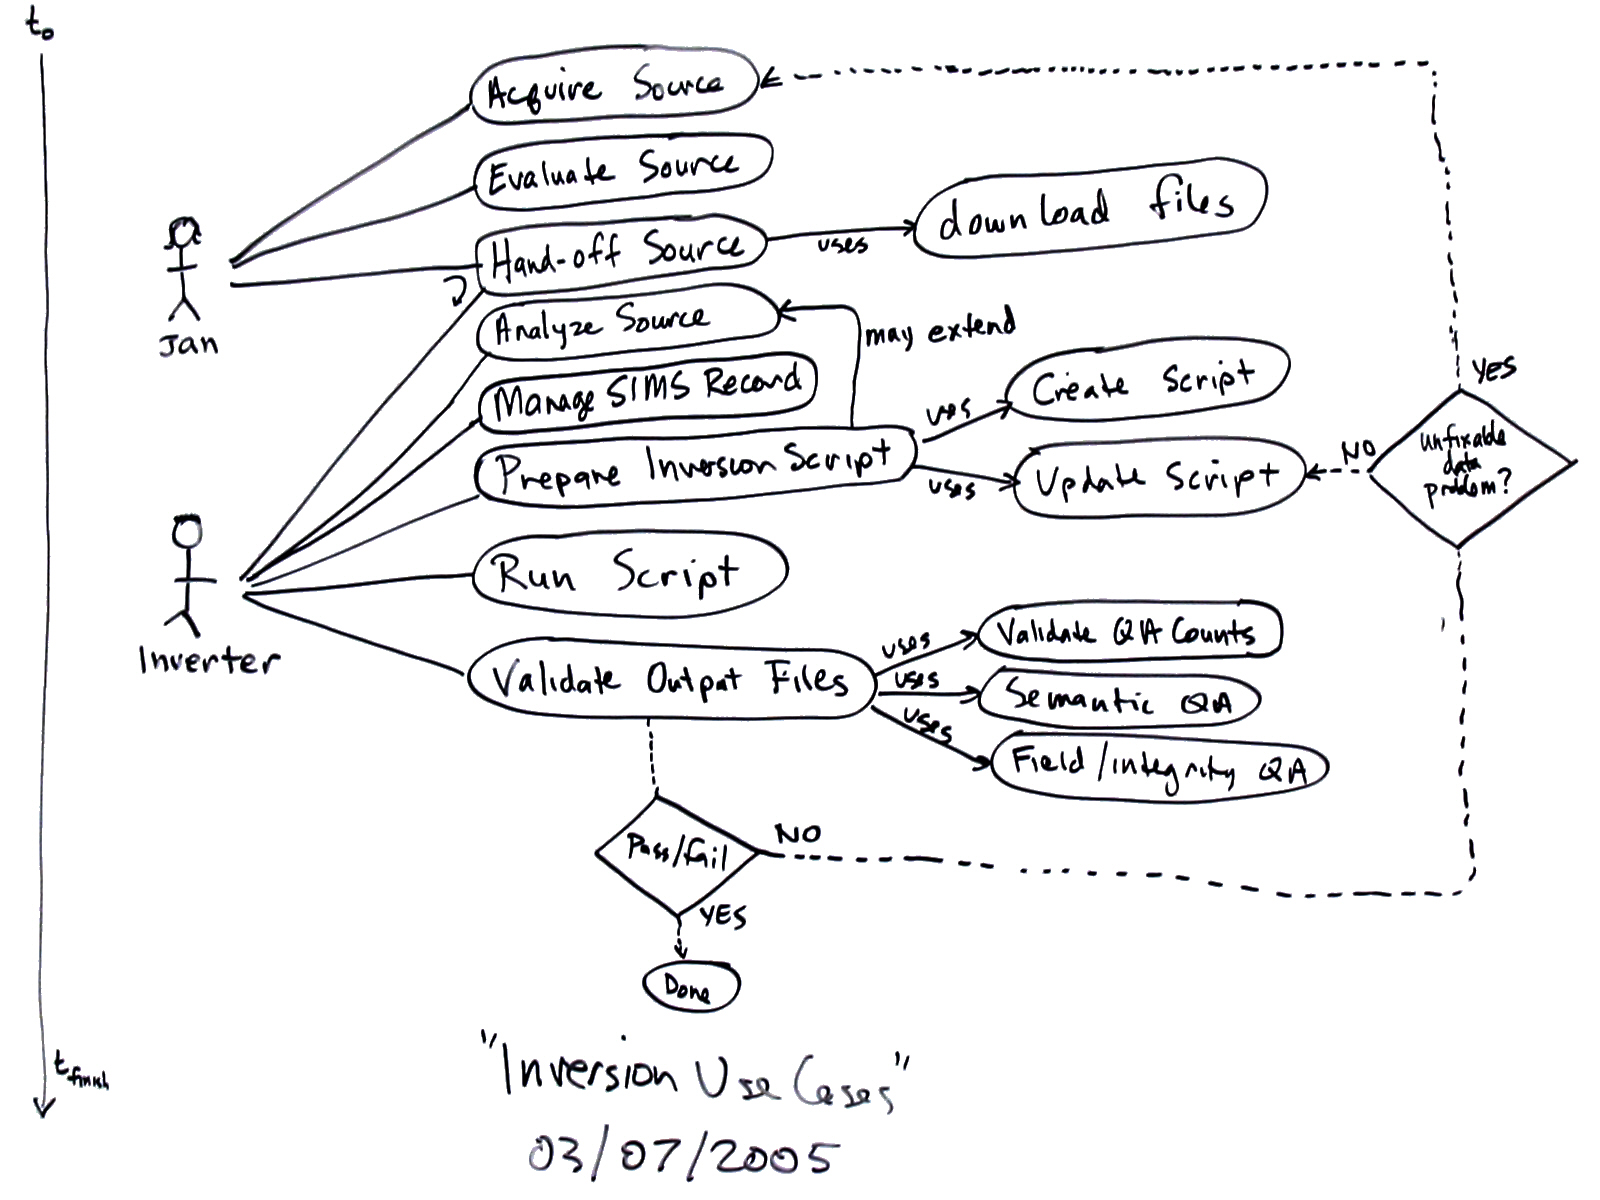 t₀
Acquire Source
Evaluate Source
Hand-off Source
uses
download files
Jan
Analyze Source
may extend
Manage SIMS Record
uses
Create Script
YES
Prepare Inversion Script
uses
Update Script
NO
unfixable
data
problem?
Run Script
Inverter
Validate Output Files
uses
Validate QA Counts
uses
Semantic QA
uses
Field/integrity QA
Pass/fail
NO
YES
Done
t finish
"Inversion Use Cases"
03/07/2005